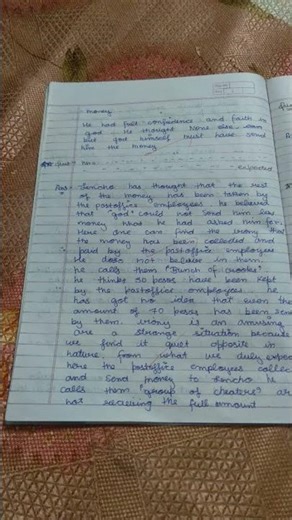 money
He had full confidence and faith in
god. He thought None else can
but god himself must have send
him the money.
Ans:- Lencho has thought that the rest
of the money had been taken by
the postoffice employees. he believed
that "god" could not send him less
money that he had asked him for.
Here one can find the irony that
the money has been collected and
paid by the postoffice employees
He does not believe in them.
he calls them "Bunch of crooks"
he thinks 30 pesos have been kept
by the postoffice employees he
has got no idea that even the
amount of 70 pesos has been send
by them. irony is an amusing
are a strange situation because
we find it quiet opposite in
nature, from what we duly expect
here the postoffice employees collec
and send money to Lencho he
calls them "group of cheaters" ar
not receiving the full amount